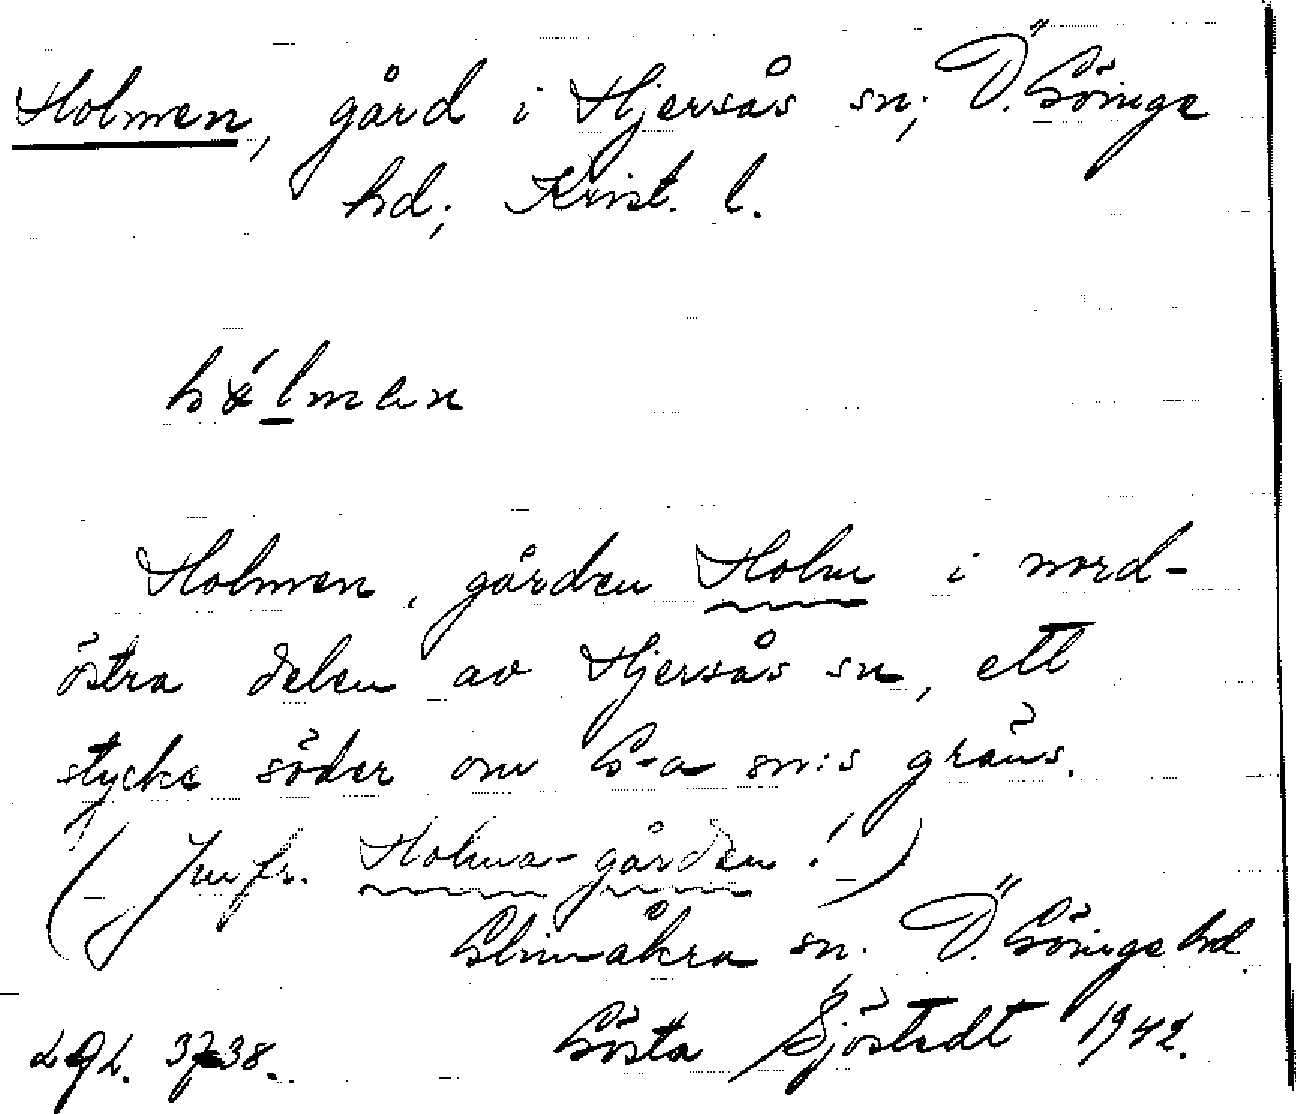 Holmen, gård i Hjersås sn; Ö. Göinge
hd; Krist. l.
Holmen, gården Holm i nord-
östra delen av Hjersås sn, ett
stycke söder om G-a sn:s gräns.
(Jmfr. Holma-gården!)
Glimåkra sn. Ö. Göinge hd.
Gösta Sjöstedt 1942.
37-38.